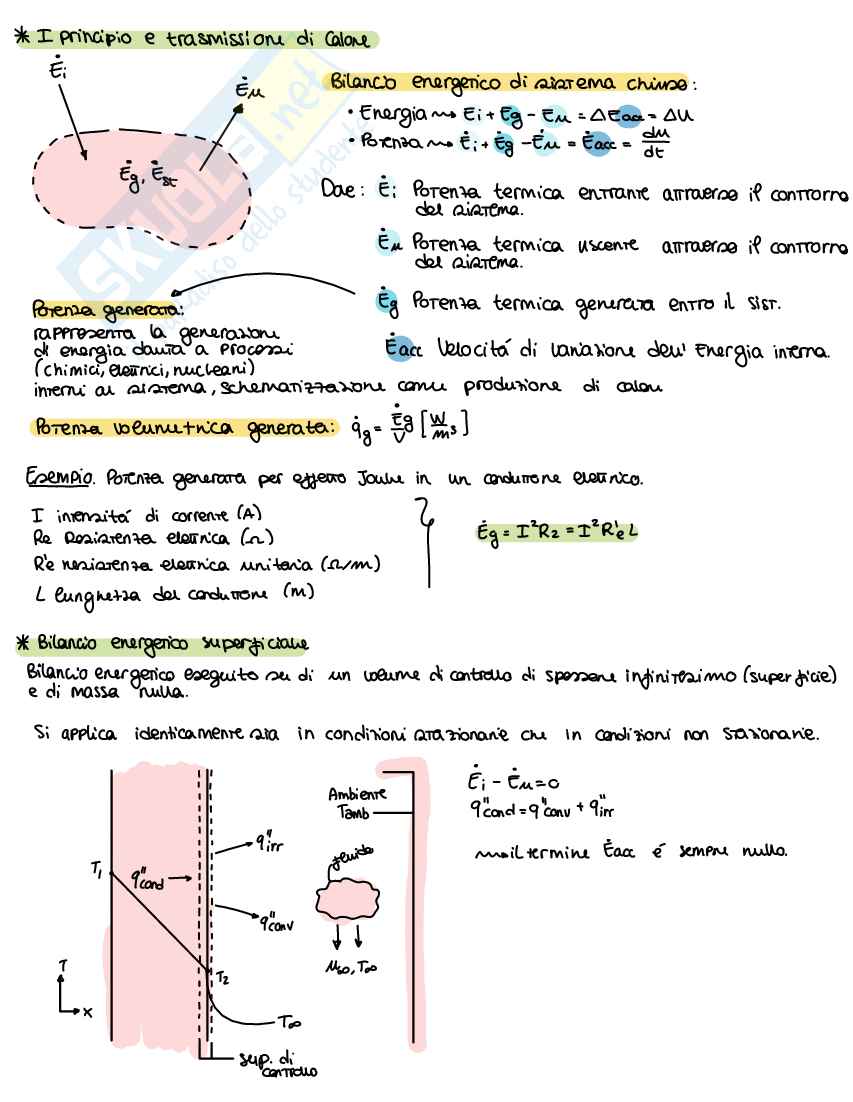 * I principio e trasmissione di Calore
Ėi
Ėu
Ėg, Ėst
Bilancio energetico di sistema chiuso:
• Energia ⇝ Ei + Eg - Eu = ΔEacc = ΔU
• Potenza ⇝ Ėi + Ėg - Ėu = Ėacc = du/dt
Dove: Ėi Potenza termica entrante attraverso il contorno
del sistema.
Ėu Potenza termica uscente attraverso il contorno
del sistema.
Ėg Potenza termica generata entro il sist.
Ėacc Velocitá di variazione dell'Energia interna.
Potenza generata:
rappresenta la generazioni
di energia dovuta a processi
(chimici, elettrici, nucleari)
interni al sistema, schematizzazione come produzione di calore
Potenza volumetrica generata: q̇g = Ėg/V [W/m³]
Esempio. Potenza generata per effetto Joule in un conduttore elettrico.
I intensitá di corrente (A)
Re Resistenza elettrica (Ω)
R'e resistenza elettrica unitaria (Ω/m)
L lunghezza del conduttore (m)
Ėg = I²R2 = I²R'e L
* Bilancio energetico superficiale
Bilancio energetico eseguito su di un volume di controllo di spessore infinitesimo (superficie)
e di massa nulla.
Si applica identicamente sia in condizioni stazionarie che in condizioni non stazionarie.
Ėi - Ėu = 0
q"cond = q"conv + q"irr
⇝ il termine Ėacc é sempre nullo.
Ambiente
Tamb
T1
q"cond
q"irr
q"conv
fluido
u∞, T∞
T2
T
x
T∞
sup. di
controllo
SKUOLA.net
paradiso dello studente